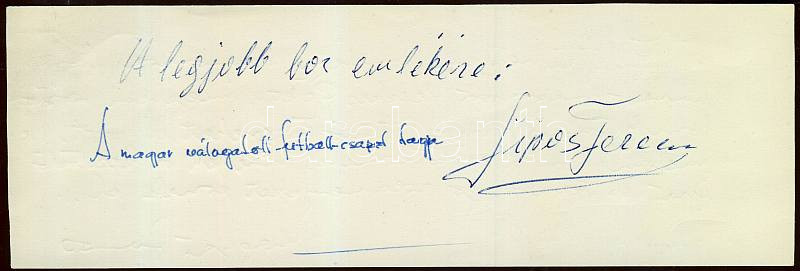 A legjobb bor emlékére:
A magyar válogatott futball-csapat tagja
Sipos Ferenc
darabanth